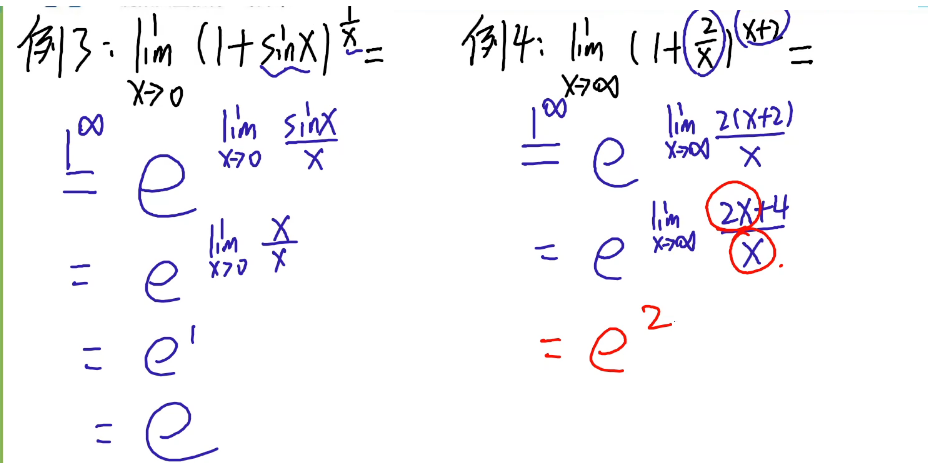 例3: lim_{x→0} (1+sinx)^{1/x} =
1^∞
= e^{lim_{x→0} sinx/x}
= e^{lim_{x→0} x/x}
= e^1
= e
例4: lim_{x→∞} (1+(2/x))^{(x+2)} =
1^∞
= e^{lim_{x→∞} 2(x+2)/x}
= e^{lim_{x→∞} 2x+4/x}.
= e^2